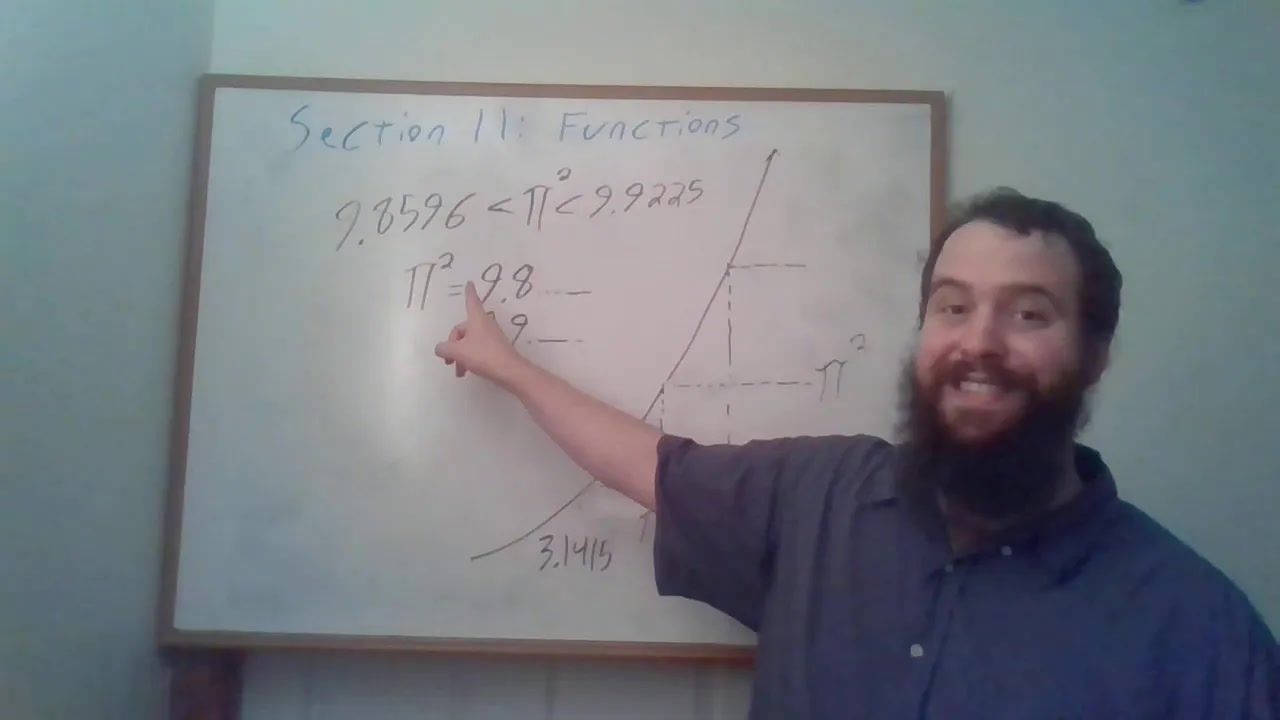 Section 11: Functions
9.8596 < π² < 9.9225
π² = 9.8_ _
9_ _
π²
3.1415